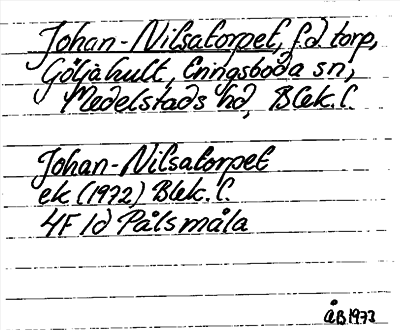 Johan-Nilsatorpet, f.d. torp,
Göljahult, Eringsboda sn,
Medelstads hd, Blek. l.
Johan-Nilsatorpet
ek (1972) Blek. l.
4F 1d Pålsmåla
ÅB 1973